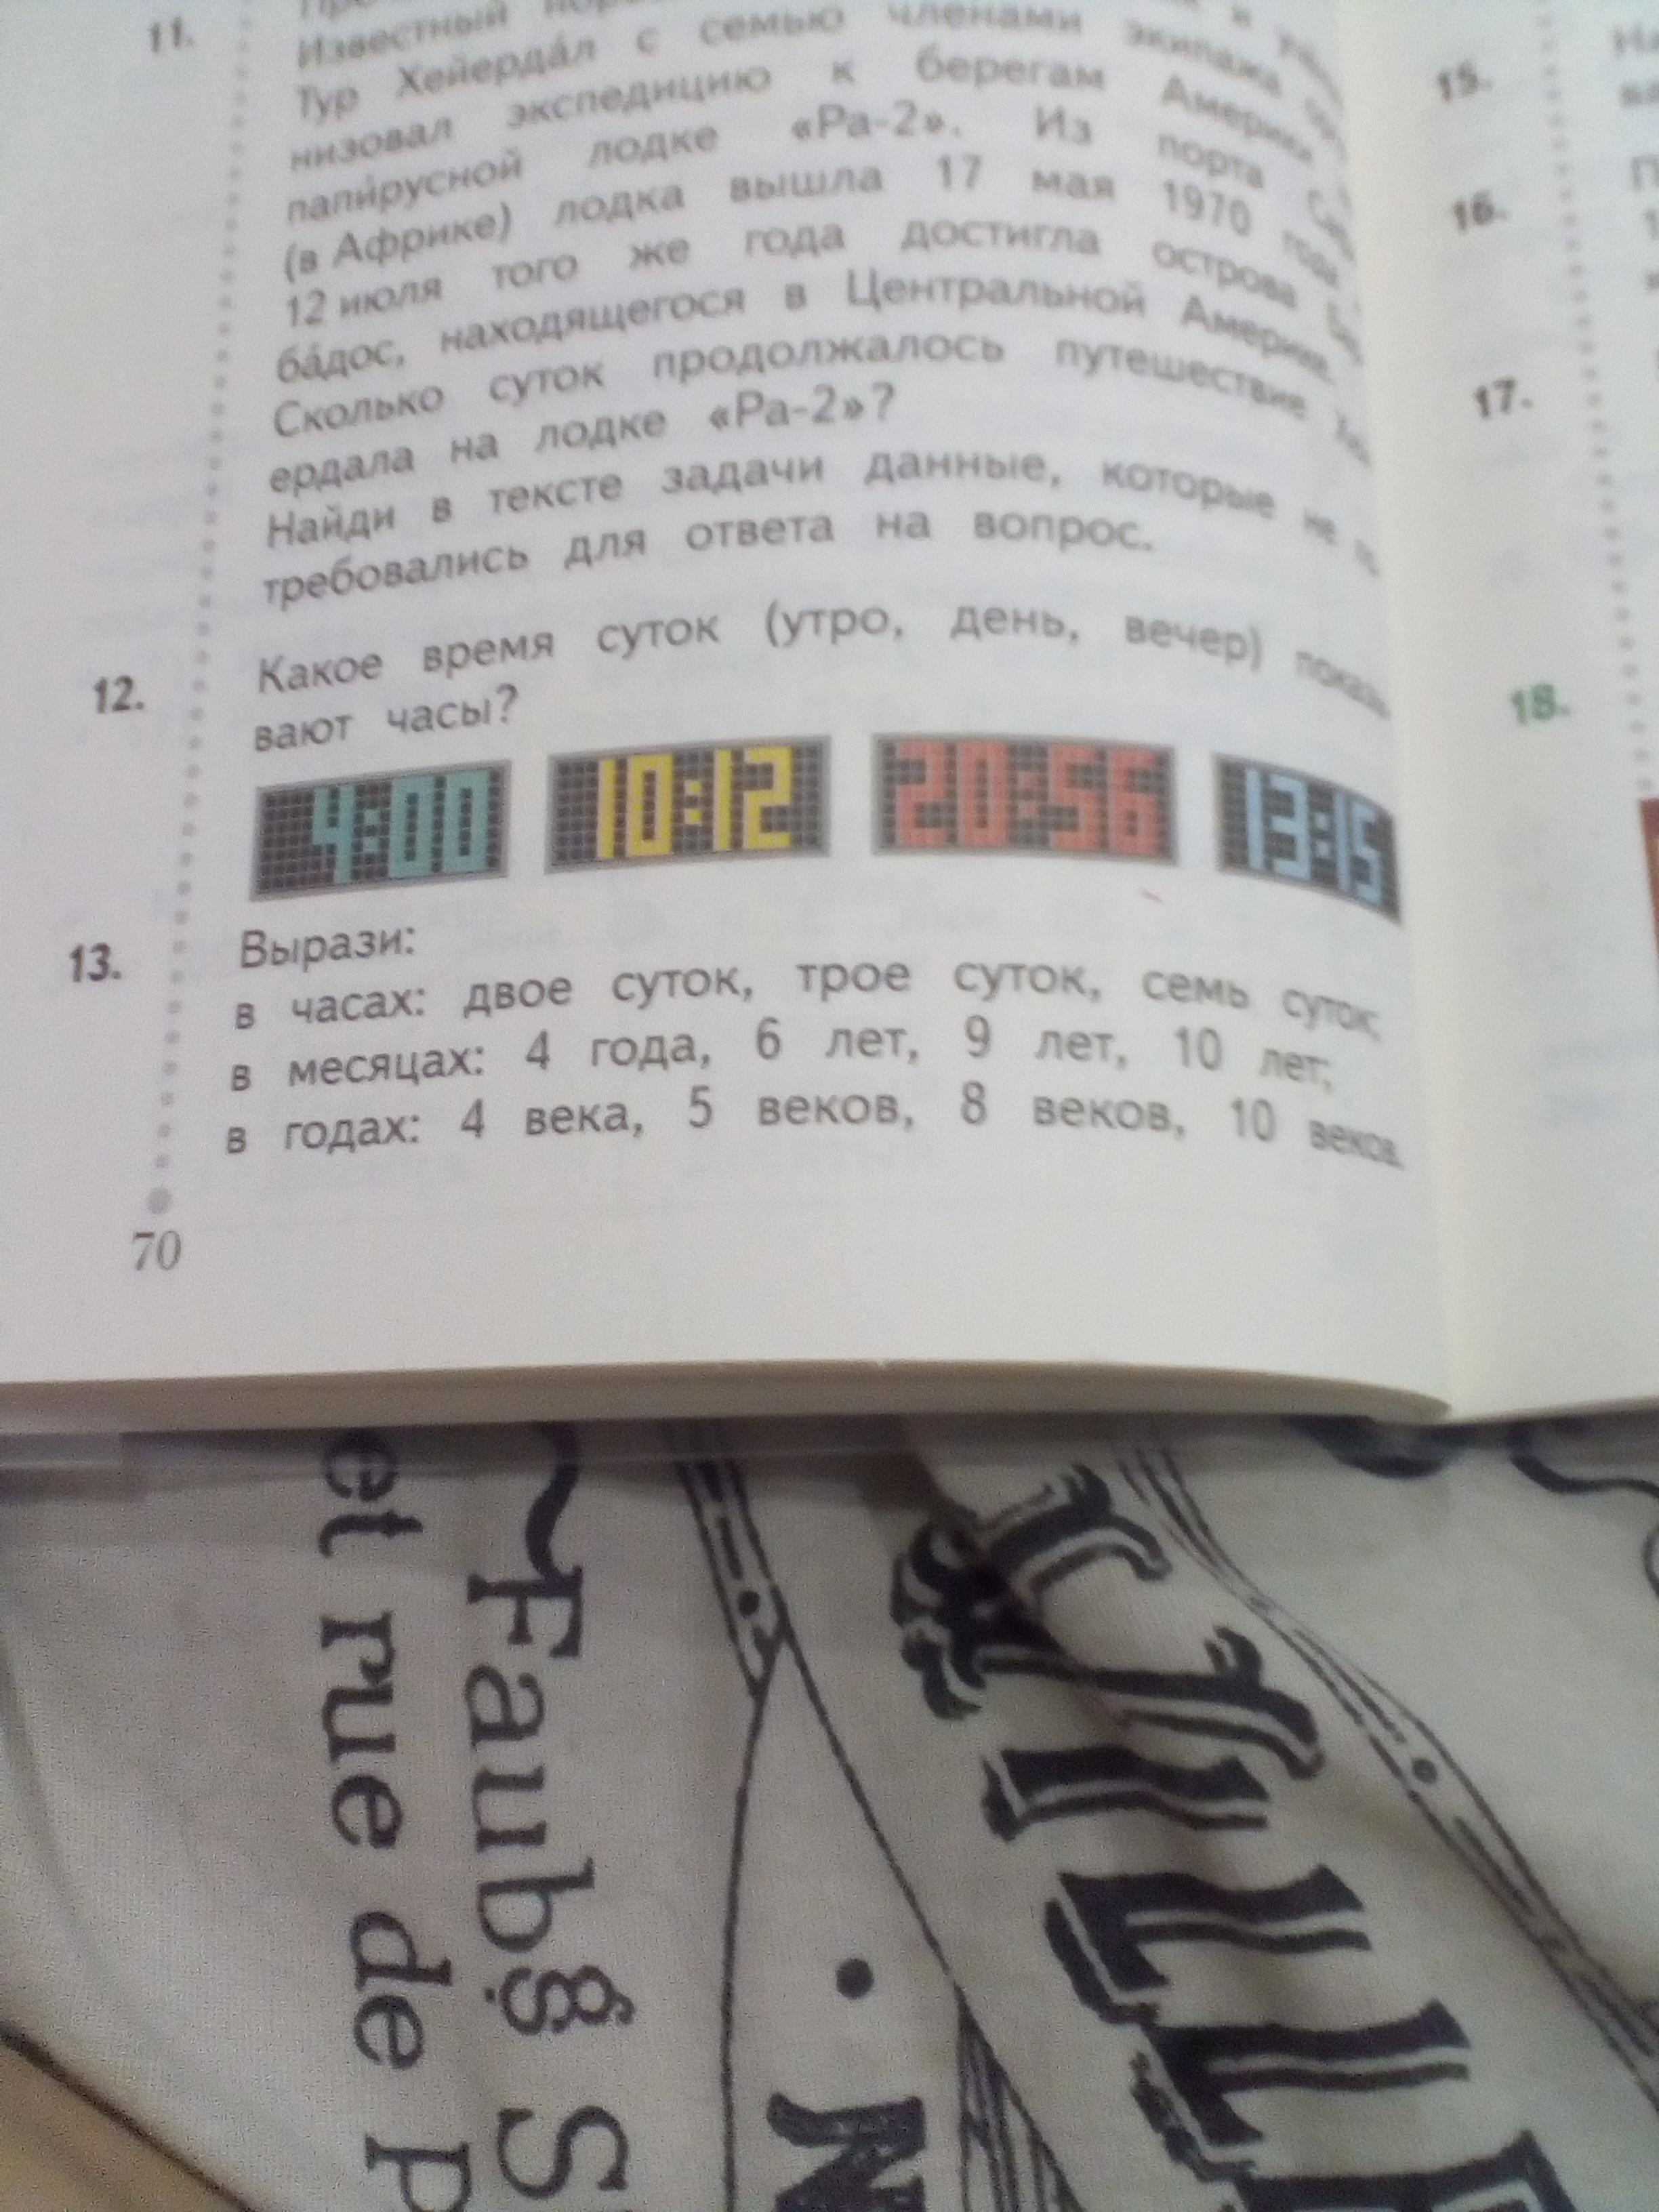 11.
Известный
Тур Хейерда́л с семью членами экипажа
низовал экспедицию к берегам Америки
папи́русной лодке «Ра-2». Из порта
(в Африке) лодка вышла 17 мая 1970 года
12 июля того же года достигла острова
ба́дос, находящегося в Центральной Америке.
Сколько суток продолжалось путешествие
ердала на лодке «Ра-2»?
Найди в тексте задачи данные, которые не
требовались для ответа на вопрос.
12. Какое время суток (утро, день, вечер) показы
вают часы?
4:00 10:12 20:56 13:15
13. Вырази:
в часах: двое суток, трое суток, семь суток;
в месяцах: 4 года, 6 лет, 9 лет, 10 лет;
в годах: 4 века, 5 веков, 8 веков, 10 веков.
70
15.
16.
17.
18.
et rue de P
Faubg S